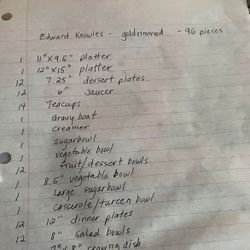 Edward Knowles - goldrimmed - 96 pieces
1 11"x9.5" platter
1 12"x15" platter
12 7.25" dessert plates
12 6" saucer
14 Teacups
1 Gravy boat
1 Creamer
1 sugarbowl
1 vegetable bowl
12 fruit/dessert bowls
1 8.5" vegetable bowl
1 Large sugarbowl
1 Casserole/tureen bowl
12 12" dinner plates
12 8" salad bowls
serving dish